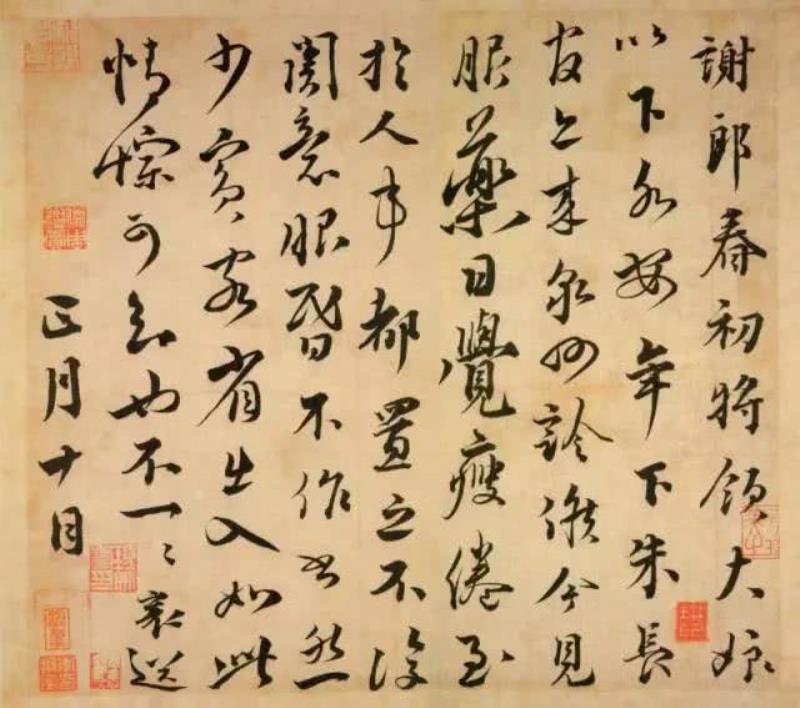 謝郎春初將領大娘
以下各安年下朱長
官來泉州診候今見
服藥日覺瘦倦至
於人事都置之不復
關意眼昏不作書然
少賓客省出入如此
情悰可知也不一〻襄送
正月十日